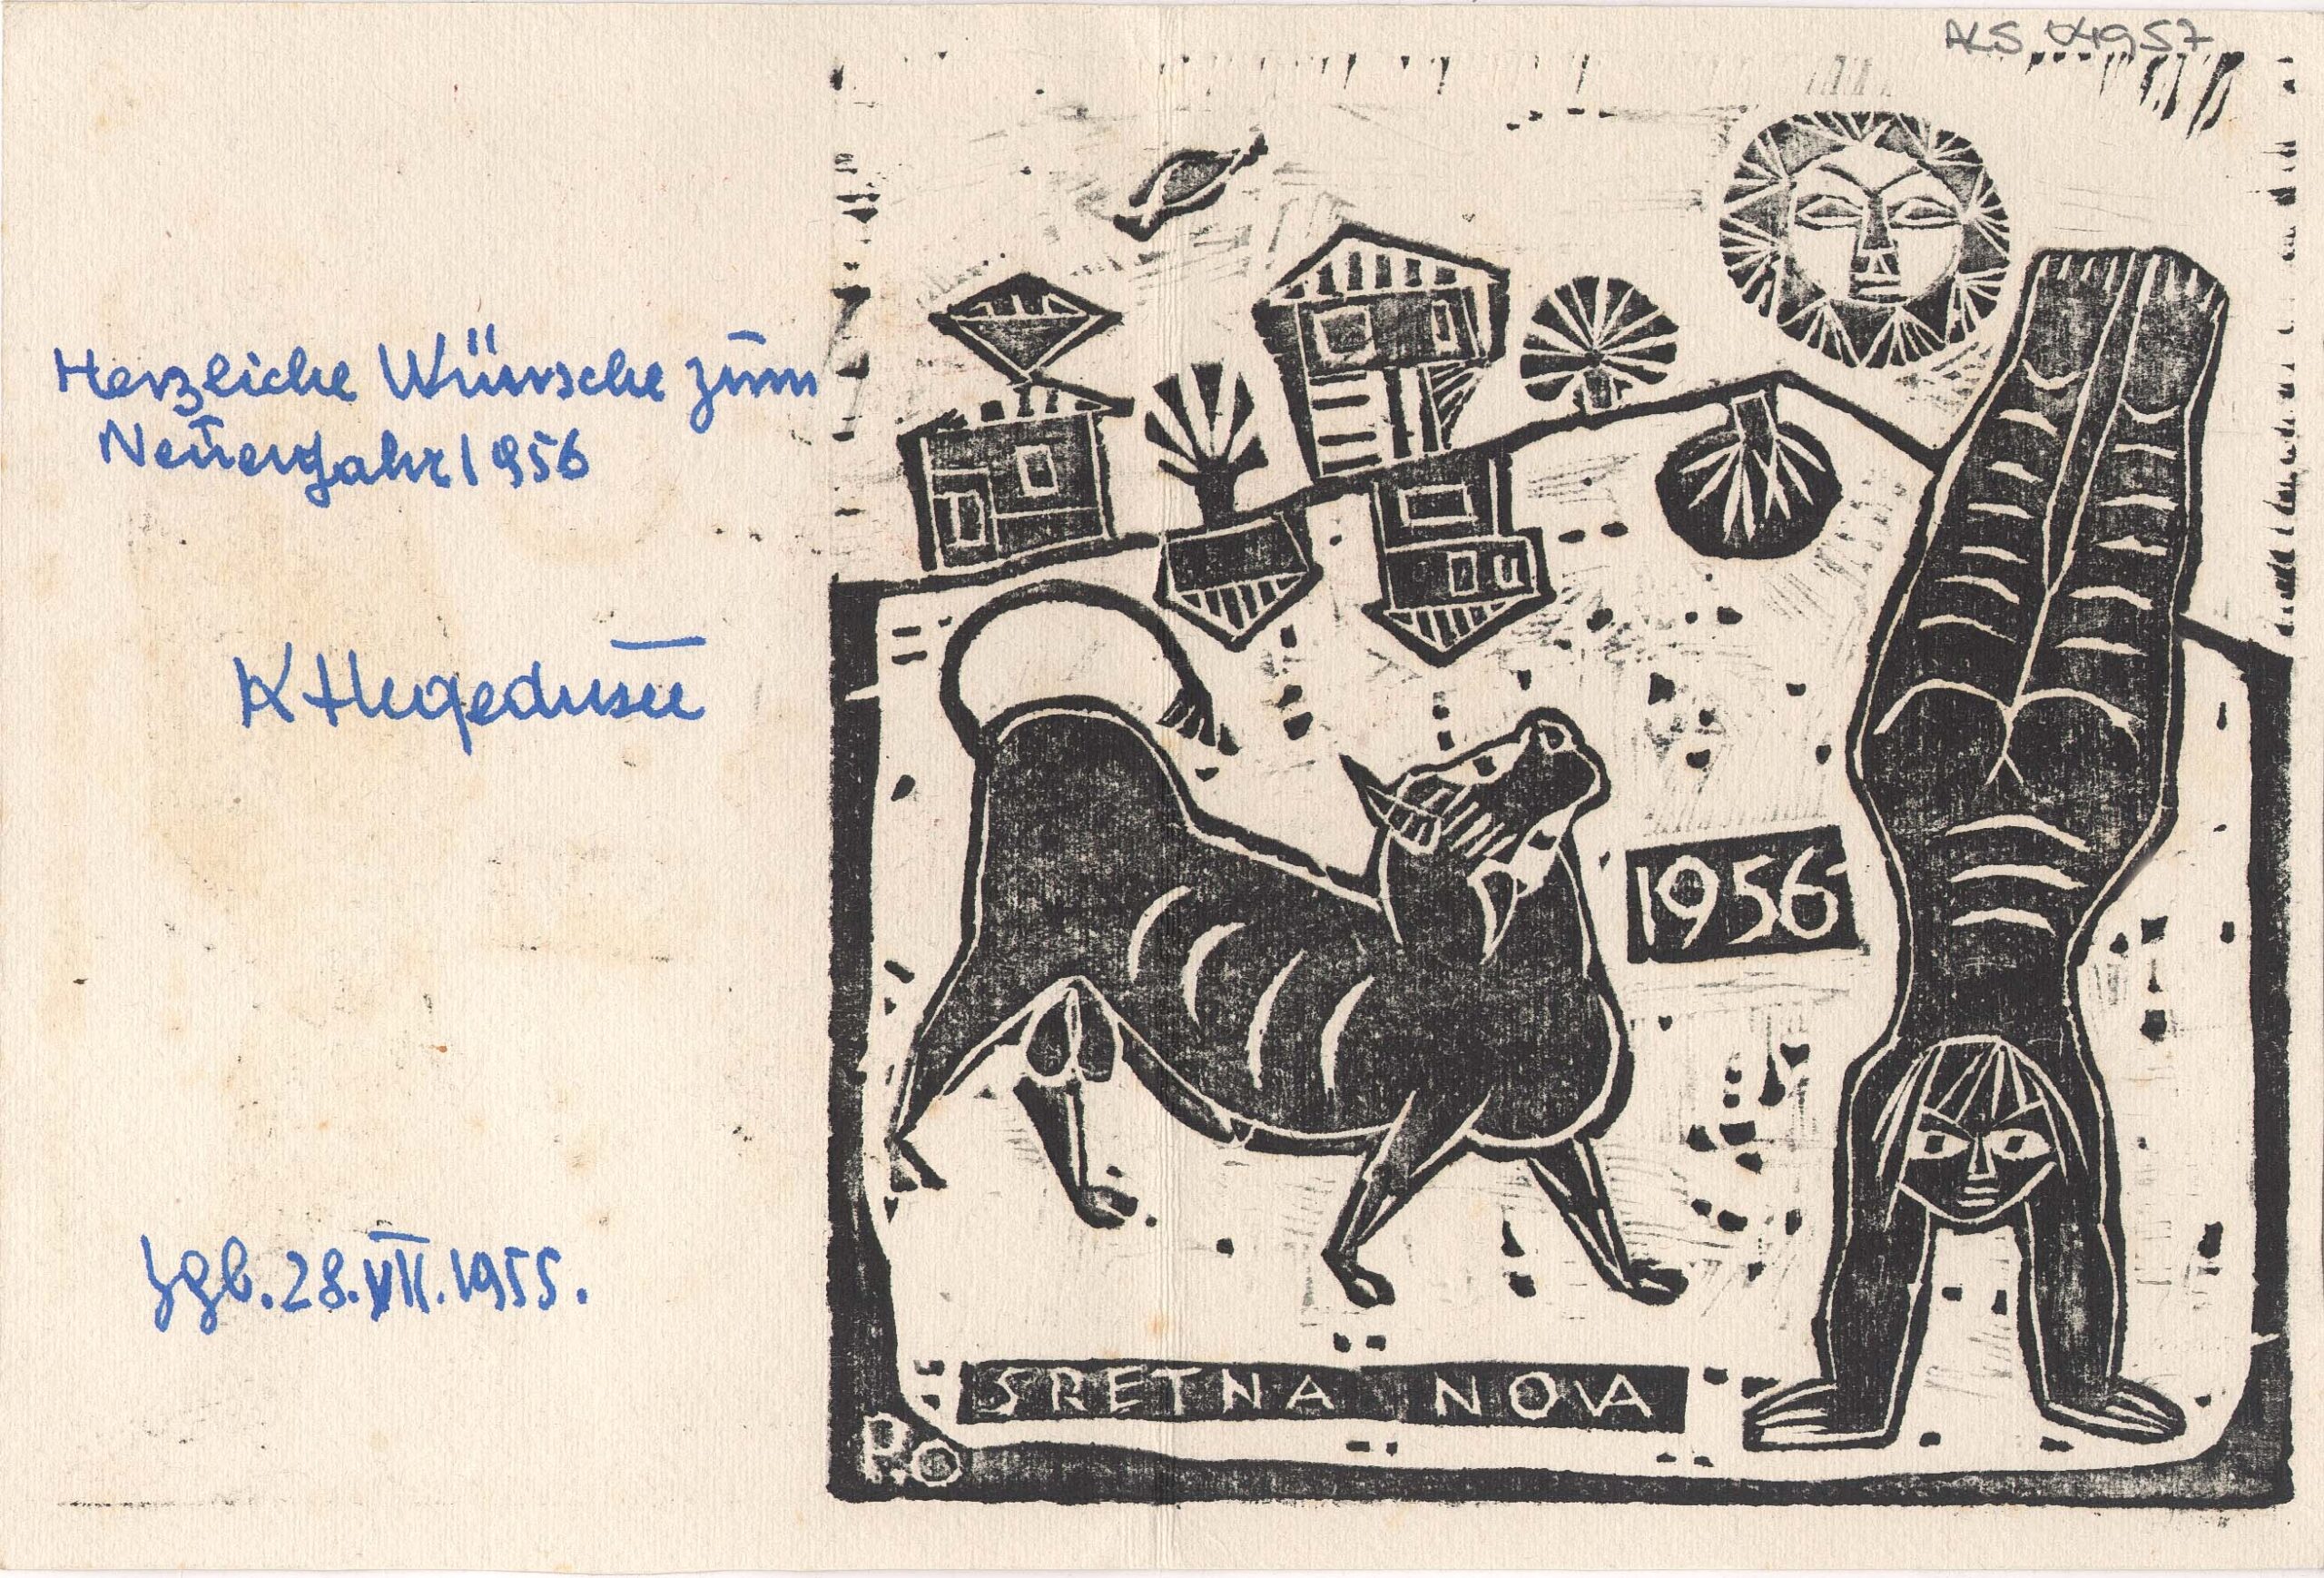 Herzliche Wünsche zum
Neuen Jahr 1956
K Hegedusić
Zgb. 28. XII. 1955.
1956
SRETNA NOVA
P.O